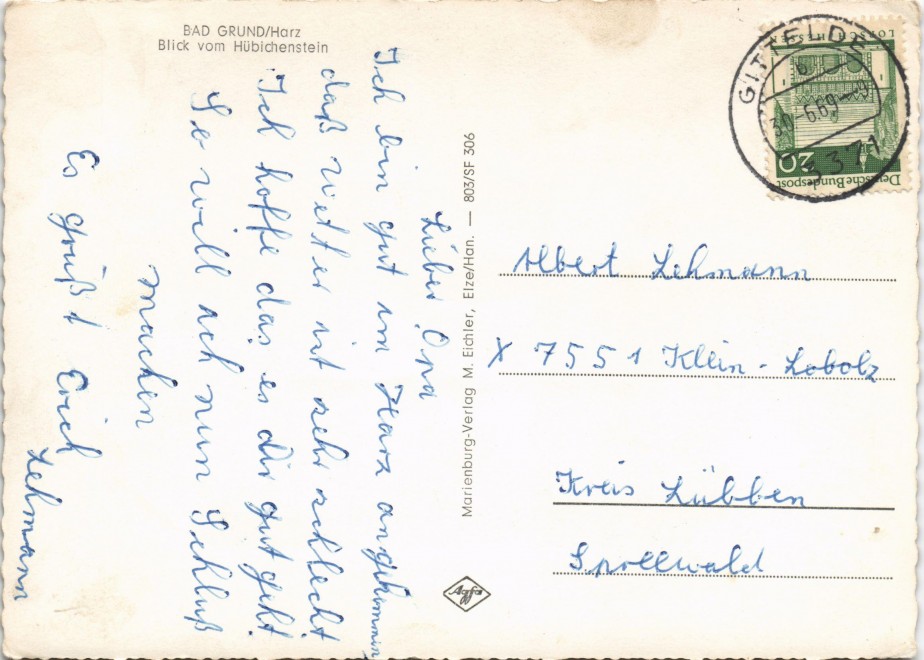 BAD GRUND/Harz
Blick vom Hübichenstein
Lieber Opa
Ich bin gut im Harz angekommen
daß wetter ist sehr schlecht
Ich hoffe das es dir gut geht.
So will ich nun Schluß
machen
Es grüßt Erich
Lehmann
Marienburg-Verlag M. Eichler, Elze/Han. — 803/SF 306
Agfa
GITTELDE
30.-6.69-
3371
LORSCH HESSEN
20
Deutsche Bundespost
Albert Lehmann
X 7551 Klein-Lobolz
Kreis Lübben
Sprellwald